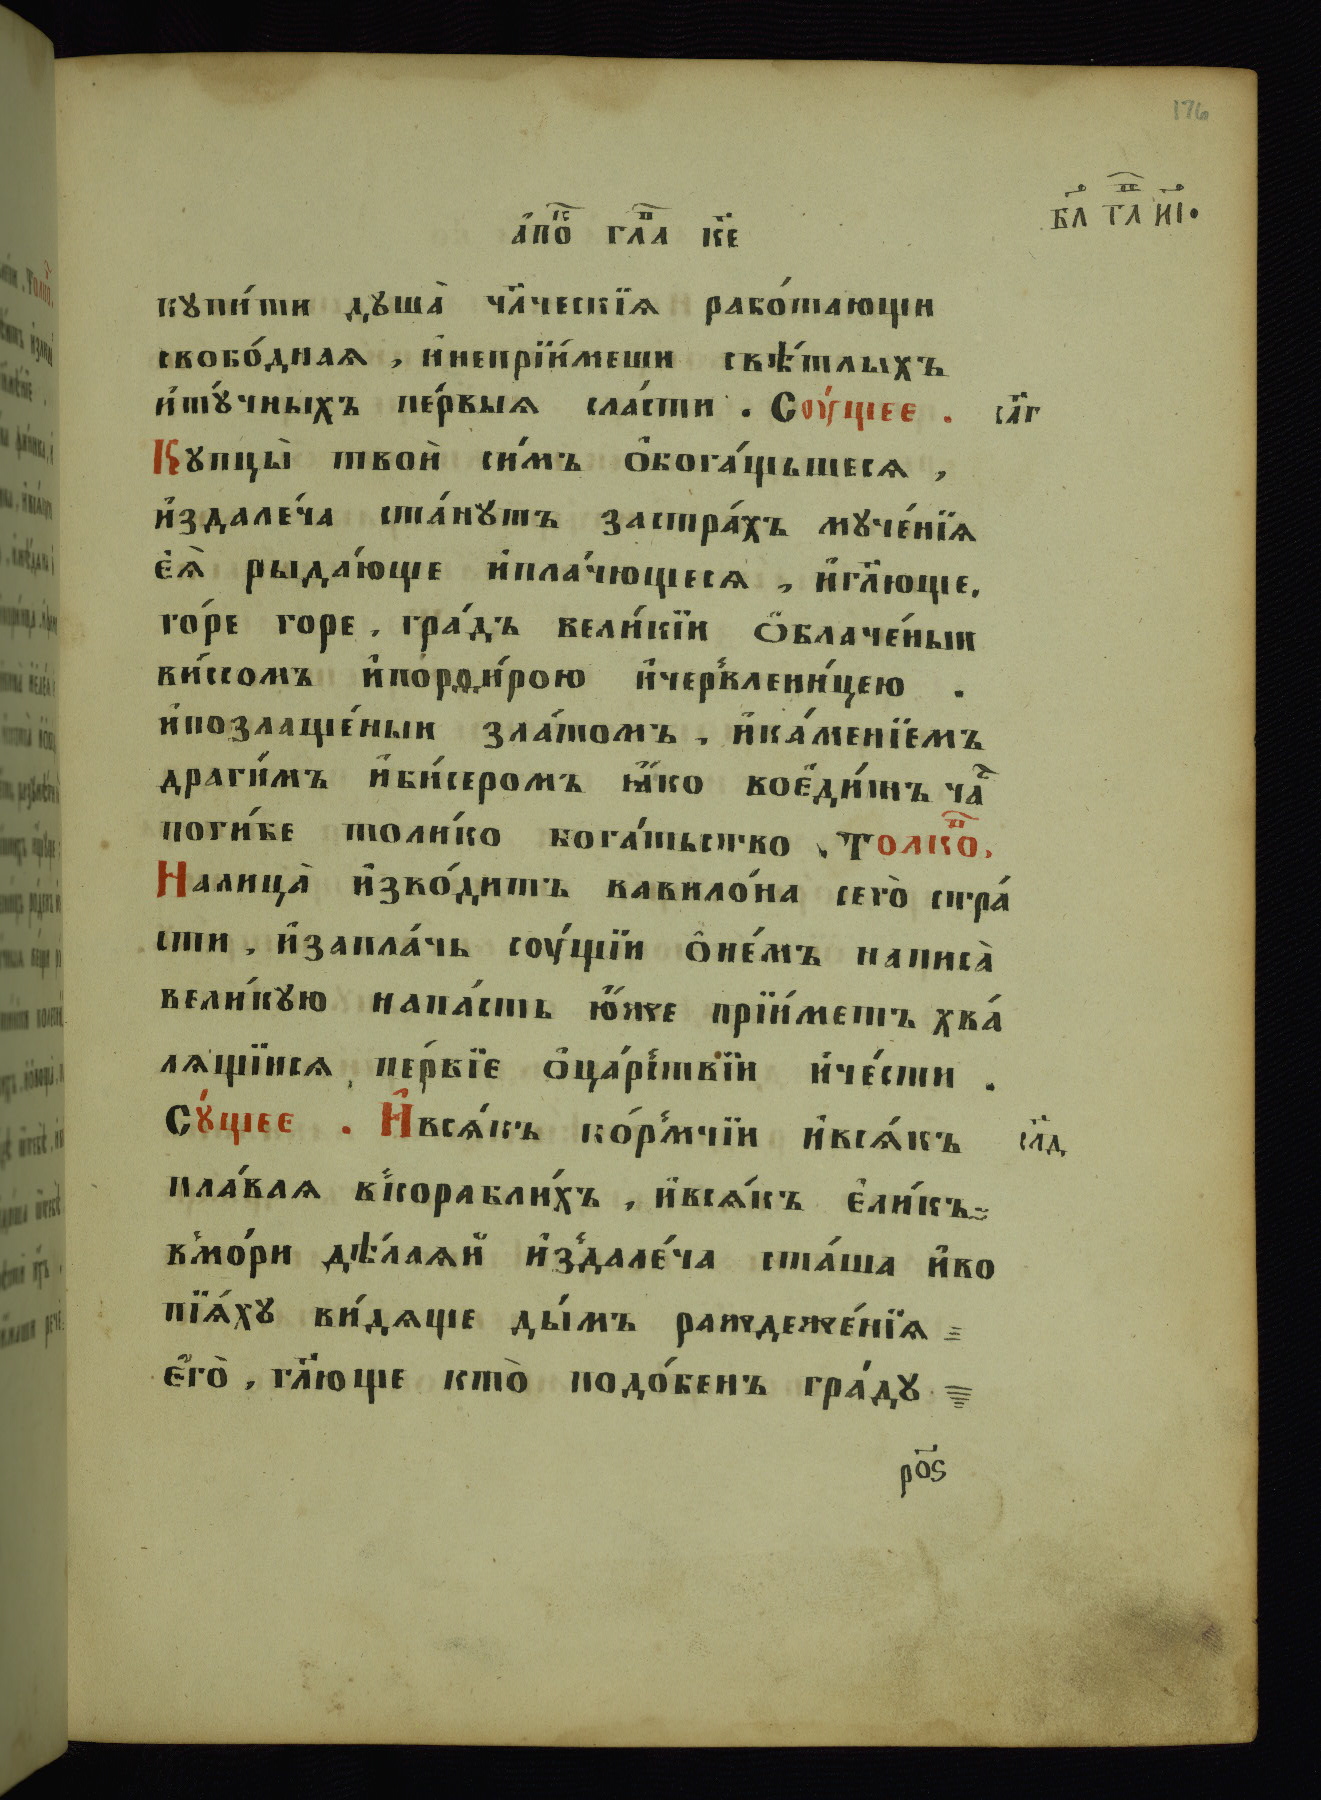 176
бл҃ гл҃ ні҃.
а҆по҃к гл҃а к҃е
купи́ти душа̀ чл҃ческїѧ рабо́тающи
свобо́днаѧ , и҆непрїи́меши свѣ́тлыхъ
и҆ту́чныхъ пе́рвыѧ сла́сти . Соу́щее . сл҃г
Купцы̀ твоѝ си́мъ ѻ҆бога́щьшесѧ ,
и҆здале́ча ста́нутъ застра́хъ муче́нїѧ
еѧ̀ рыда́юще и҆пла́чющесѧ , и҆гл҃юще.
го́ре горе . гра́дъ вели́кїи ѻ҆блаче́ныи
ви́ссомъ и҆порфи́рою и҆червлени́цею .
и҆позлаще́ныи зла́томъ . и҆ка́менїемъ
драги́мъ и҆би́серомъ ꙗ҆́ко воеди́нъ ча҃с
поги́бе толи́ко бога́тьство . Толко҃в.
Налица̀ и҆зво́дитъ вавило́на сего̀ стра́
сти . и҆запла́чь соу́щїи ѻ҆не́мъ написа̀
вели́кую напа́сть ю҆́же прїи́метъ хва́
лѧщїисѧ пе́рвїе ѻ҆ца́рствїи и҆че́сти .
Су́щее . И҆всѧ́къ ко́рмчїи и҆всѧ́къ сл҃д
пла́ваѧ вкорабли́хъ , и҆всѧ́къ є҆ли́къ
вмо́ри дѣ́лаѧй и҆здале́ча ста́ша и҆во
пїѧ́ху ви́дѧще ды́мъ раждеже́нїѧ
є҆го̀ . гл҃юще кто̀ подо́бенъ гра́ду
ро҃ѕ